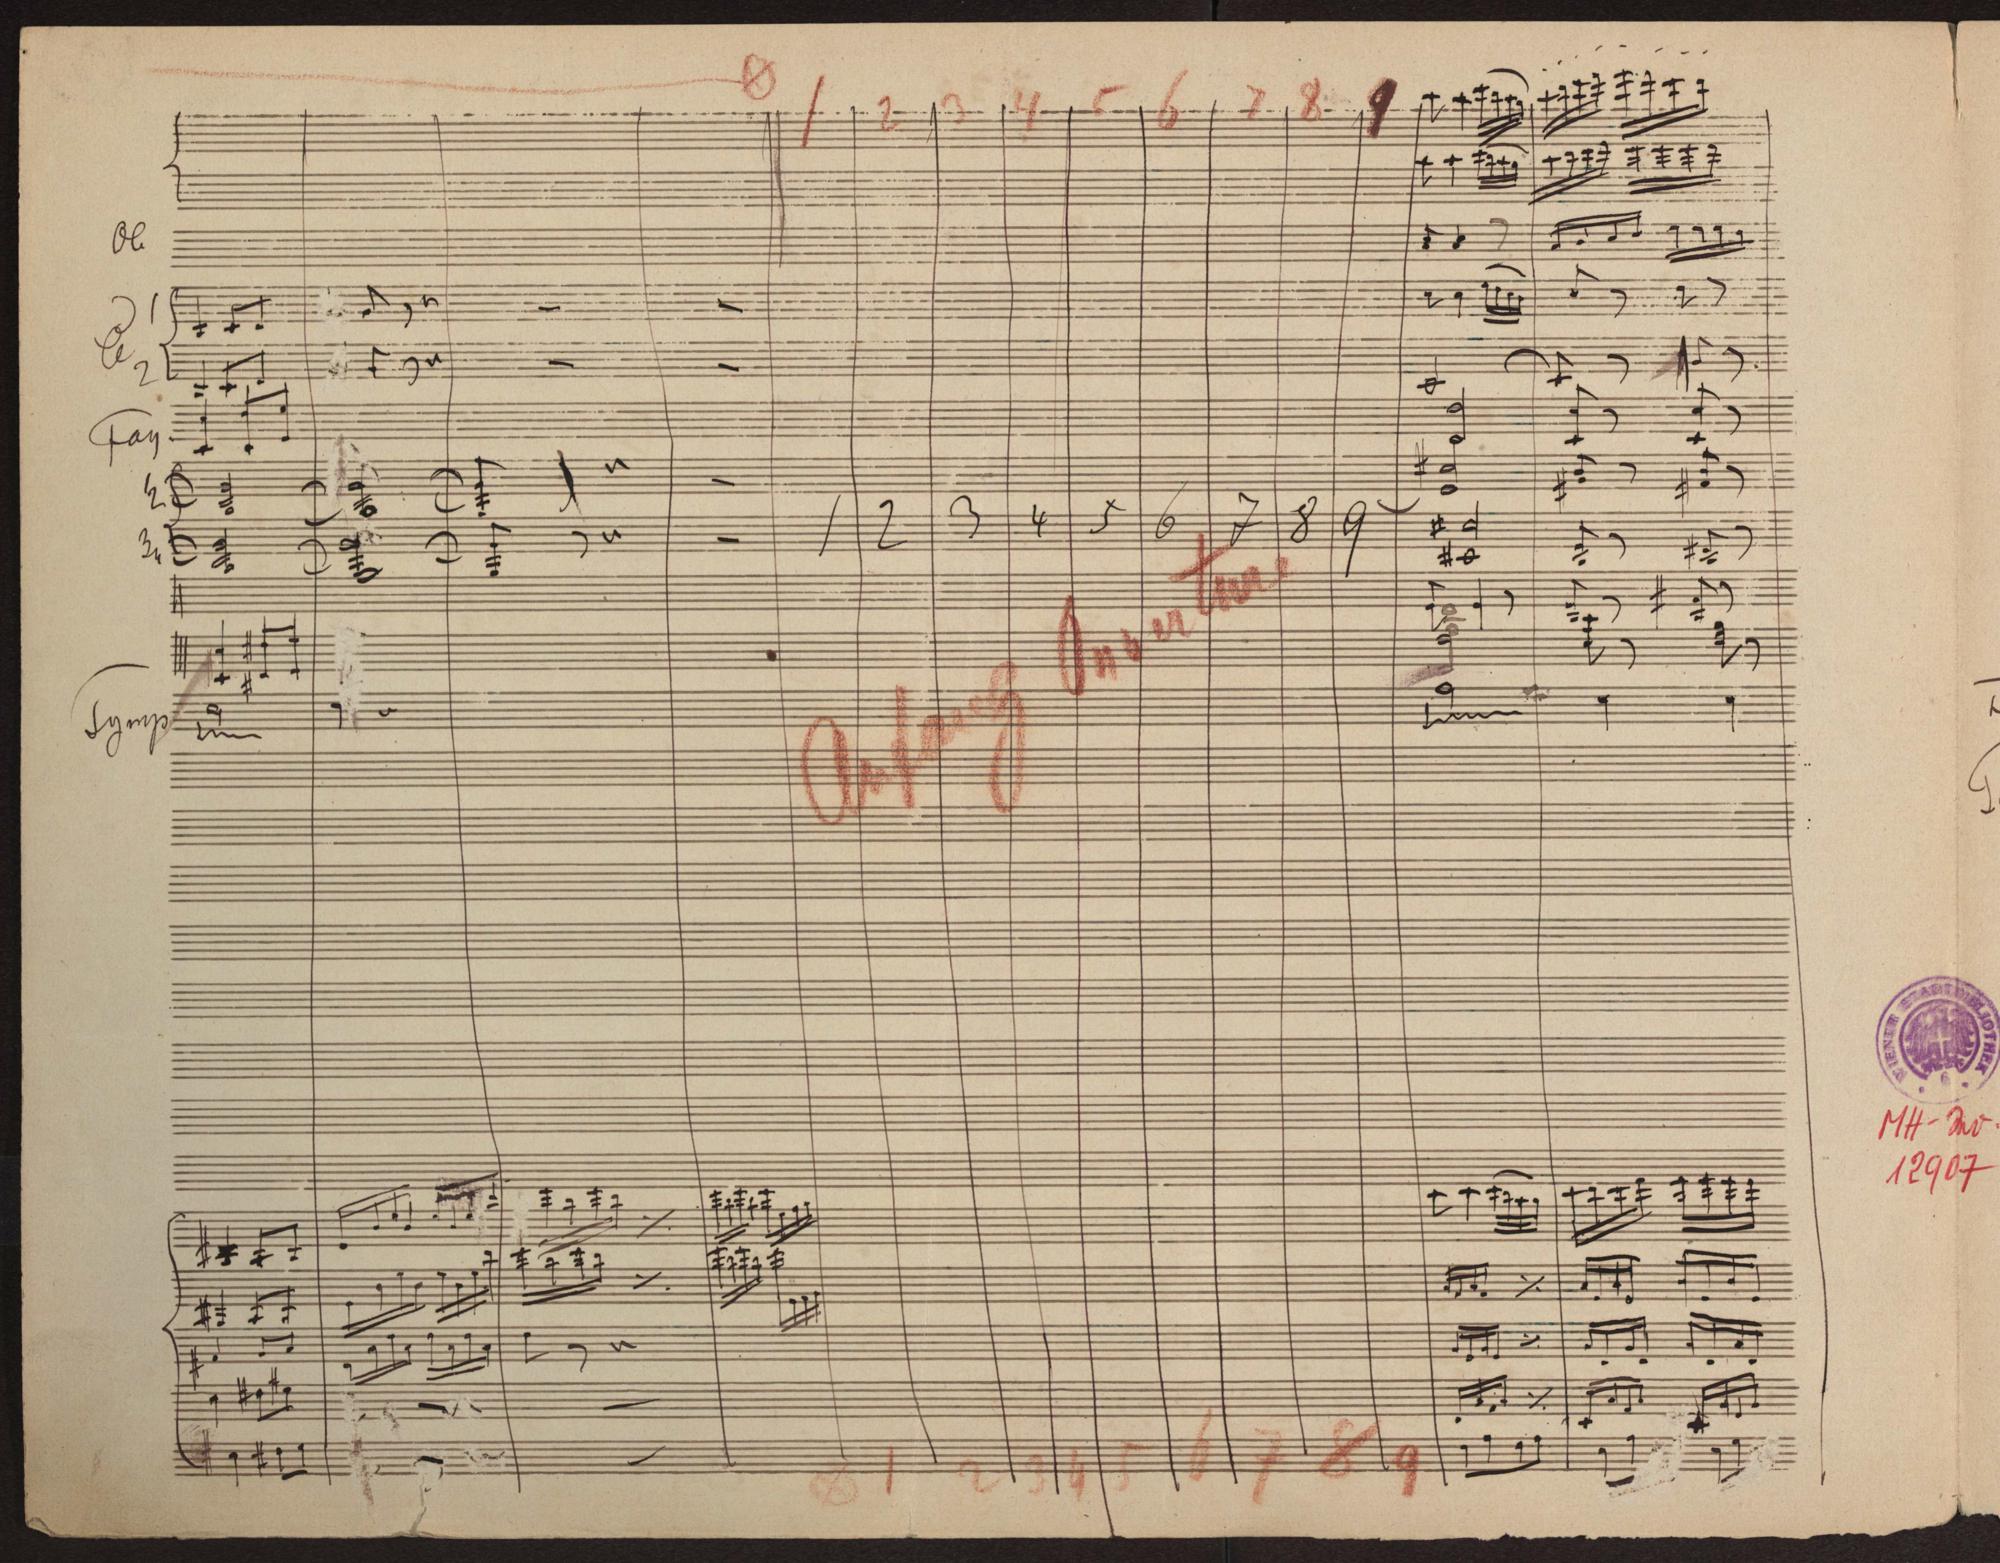 1 2 3 4 5 6 7 8 9
Ob
1
Cl
2
Fag.
1 2 3 4 5 6 7 8 9
Anfang Ouverture
Tymp
WIENER STADTBIBLIOTHEK
MH-Inv.
12907
1 2 3 4 5 6 7 8 9